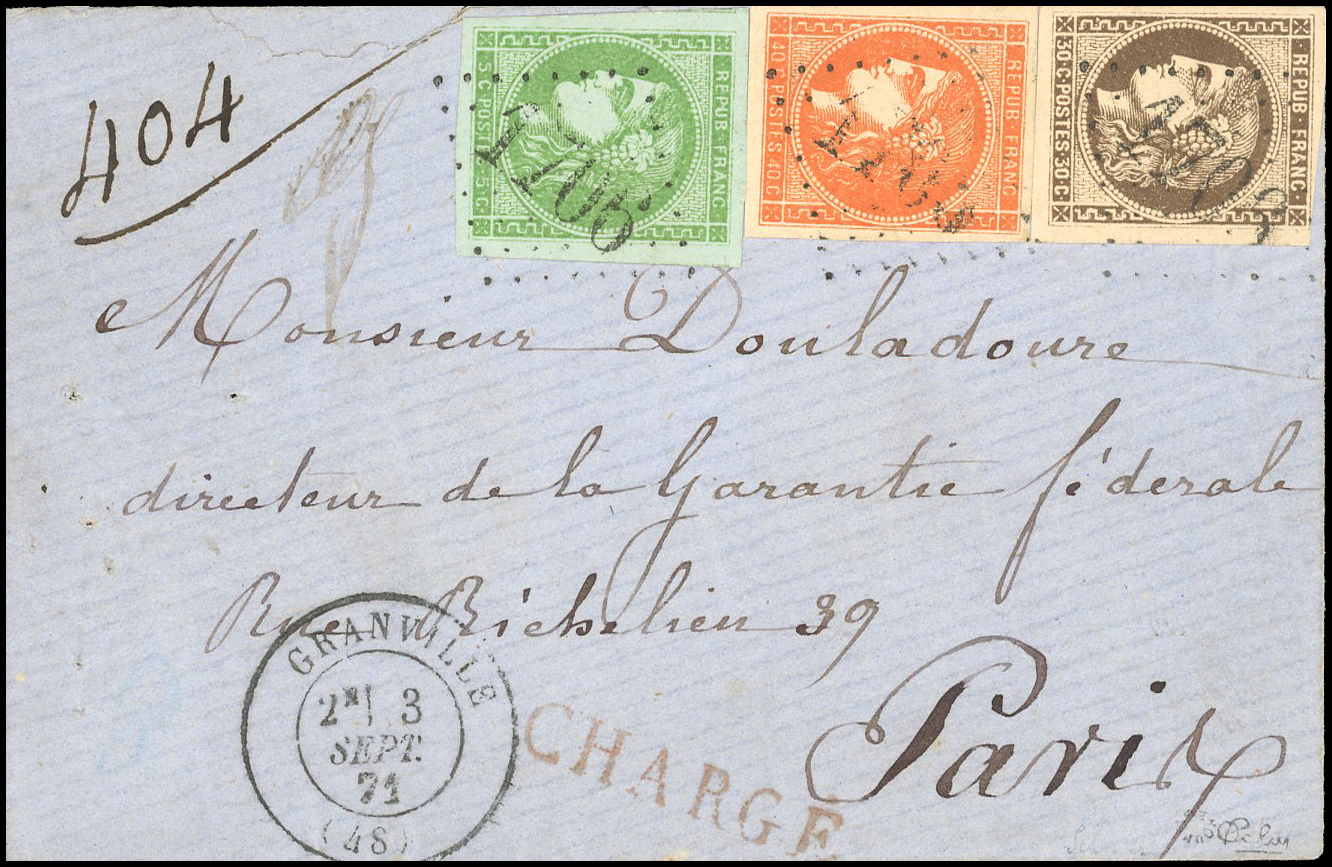 404
5·C·POSTES·5·C
REPUB·FRANC
40 POSTES 40 C
REPUB·FRANC·
30·C·POSTES 30 C
·REPUB·FRANC·
1706
Monsieur Douladoure
directeur de la Garantie fédérale
Rue Richelieu 39
Paris
GRANVILLE
2E 3
SEPT.
71
(48)
CHARGÉ